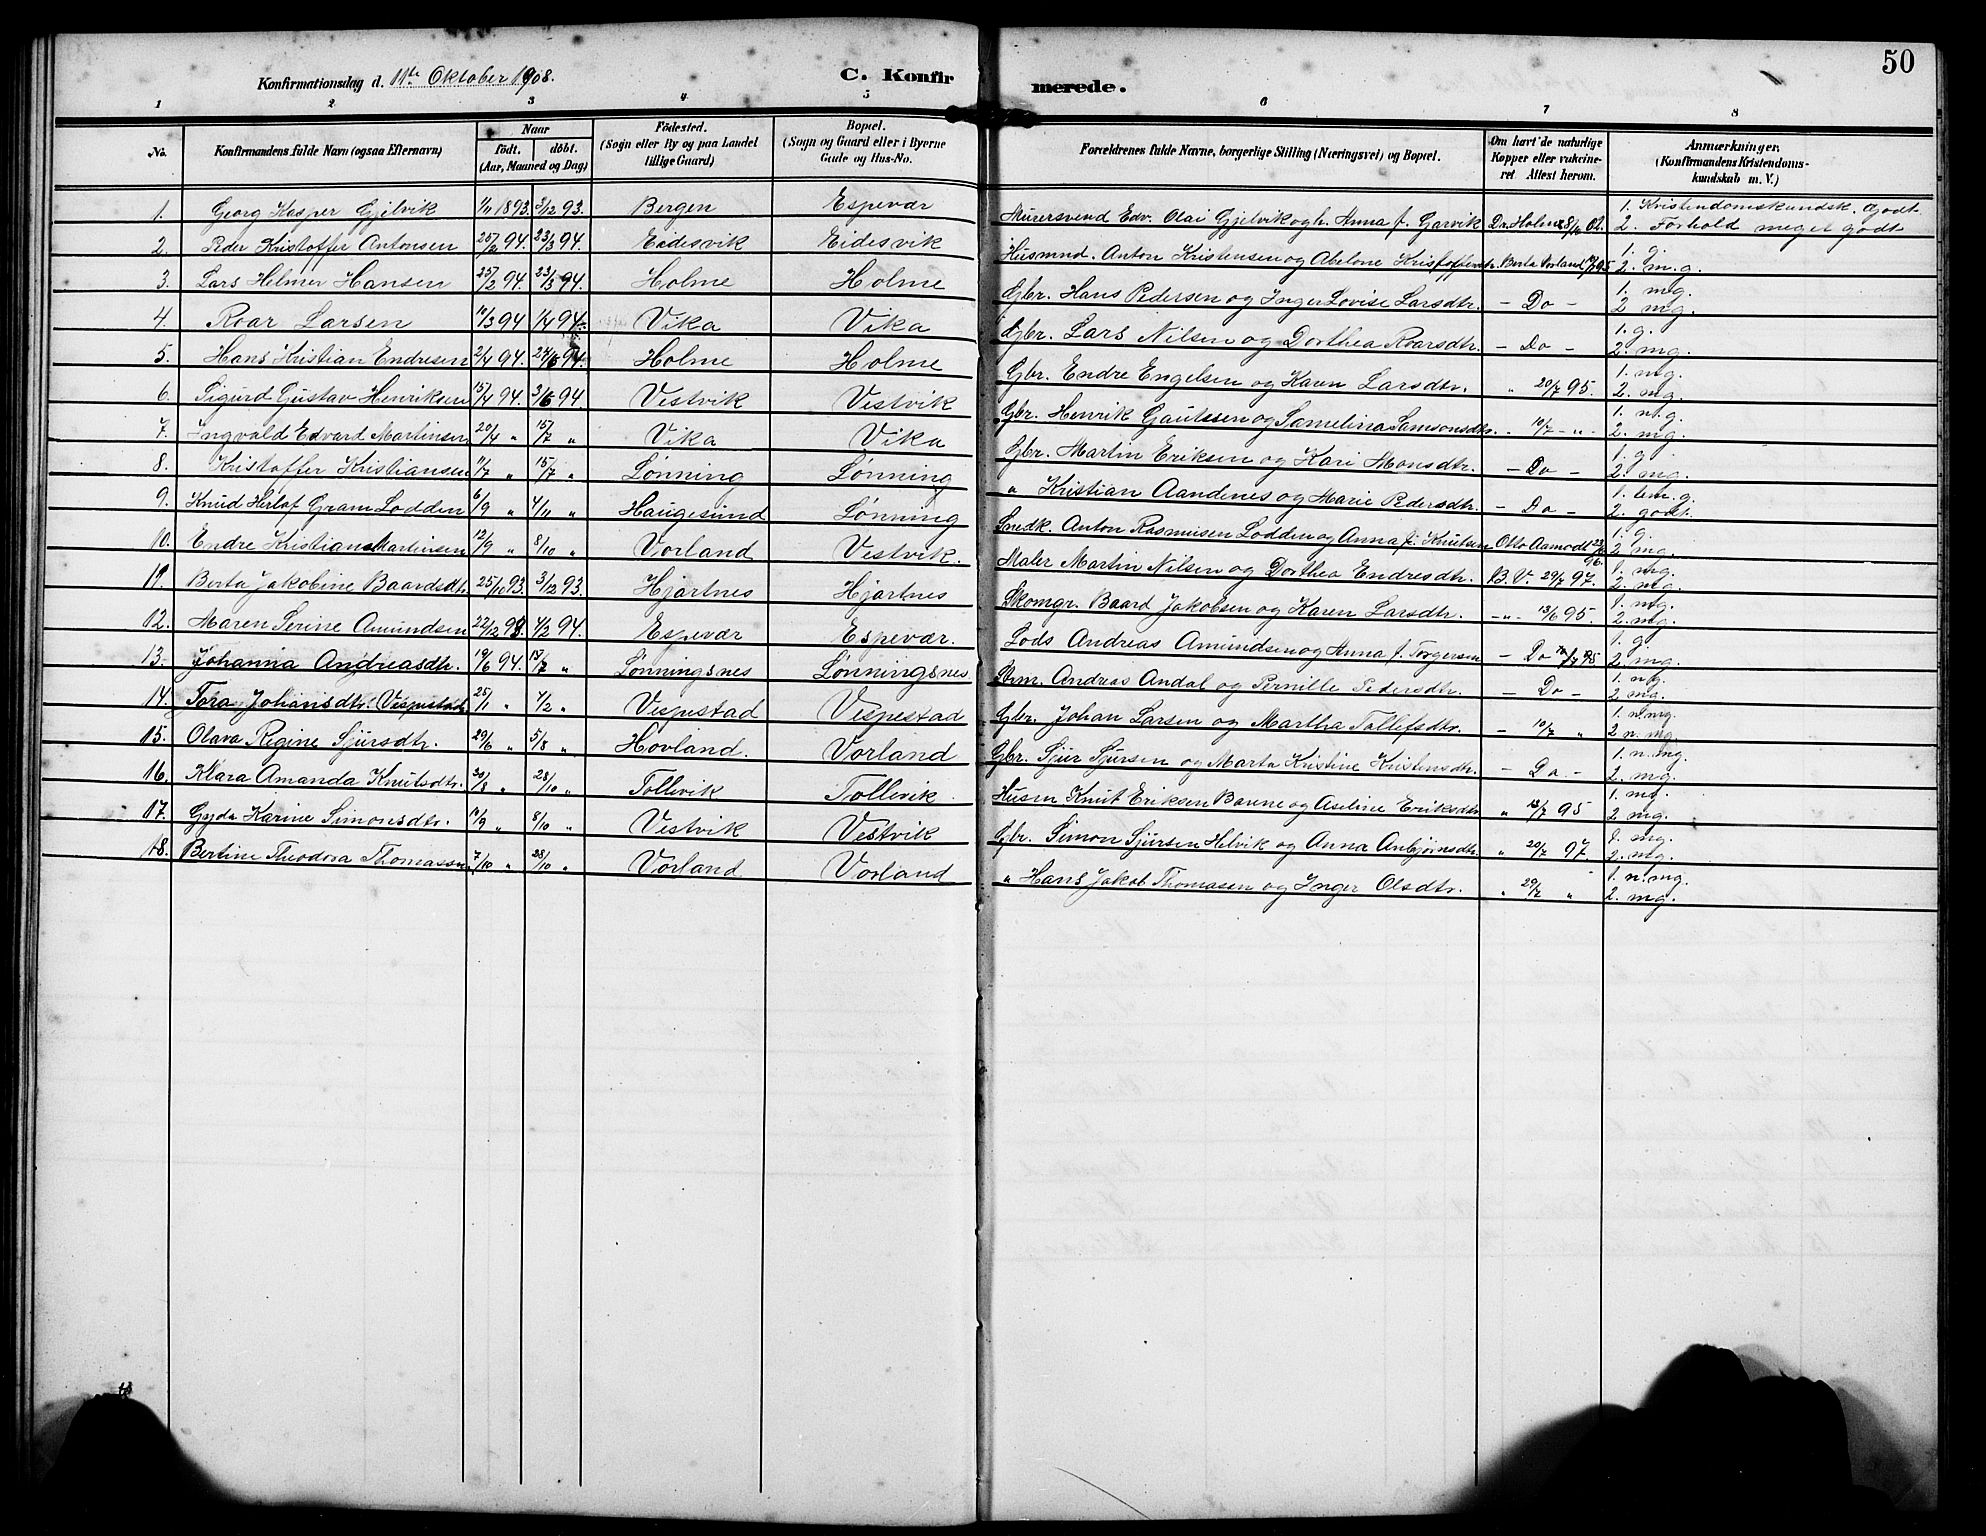 50
Konfirmationsdag d. 11te Oktober 1908. C. Konfirmerede.
1 2 3 4 5 6 7 8
No. Konfirmandens fulde Navn (ogsaa Efternavn) Naar födt. döbt. (Aar, Maaned og Dag) Födested. (Sogn eller By og paa Landet tillige Gaard) Bopæl. (Sogn og Gaard eller i Byerne Gade og Hus-No. Forældrenes fulde Navne, borgerlige Stilling (Næringsvei) og Bopæl. Om havt de naturlige Kopper eller vakcineret Attest herom. Anmærkninger, (Konfirmandens Kristendomskundskab m. V.)
1. Georg Kasper Gjelvik 1/11 1893. 3/12 93. Bergen Espevær Murersvend Edv. Olai Gjelvik og h. Anna f. Garvik Dr. Holm 1. Kristendomskundsk. Godt 2. Forhold meget godt
2. Peder Kristoffer Antonsen 25/2 94. 23/3 94. Eidesvik Eidesvik Husmnd. Anton Kristensen og Abelone Kristoffersdtr. Berta Vorland 1. g. 2. m.g.
3. Lars Helmer Hansen 25/2 94. 23/3 94. Holme Holme Gbr. Hans Pedersen og Inger Lovise Larsdtr. - Do - 1. mg. 2 mg.
4. Roar Larsen 10/3 94 1/4 94. Vika Vika Gbr. Lars Nilsen og Dorthea Roarsdtr. - Do - 1. g. 2. mg.
5. Hans Kristian Endresen 2/4 94. 94. Holme Holme Gbr. Endre Engelsen og Karen Larsdtr. " 20/7 95. 1. mg. 2. mg.
6. Sigurd Gustav Henriksen 15/4 94. 94. Vestvik Vestvik Gbr. Henrik Gautssen og Samelina Samsonsdtr. " 10/7 - " - 1. n.g. 2. mg.
7. Ingvald Edvard Martinsen 20/4 " 15/7 " Vika Vika Gbr. Martin Eriksen og Kari Monsdtr. - Do - 1. g. 2. mg.
8. Kristoffer Kristiansen 11/7 " 15/7 " Lønning Lønning " Kristian Aandenes og Marie Pedersdtr. - Do - 1. tem. g. 2. godt.
9. Knud Herlof Gram Lodden 6/9 " 4/11 " Haugesund Lønning Snedk. Anton Rasmusen Lodden og Anna f. Knutsen Otto Aamodt 1. g. 2 mg.
10. Endre Kristian Martinsen 12/9 " 8/10 " Vorland Vestvik. Maler Martin Nilsen og Dorthea Endresdtr. B. V. 29/7 97. 1. mg. 2. mg.
11. Berta Jakobine Baardsdtr. 25/10 93. 3/12 93. Hjartnes Hjartnes Skomgr. Baard Jakobsen og Karen Larsdtr. - " - 13/6 95. 1. mg. 2. mg.
12. Maren Serine Amundsen 22/12 93. 4/2 94. Espevær Espevær. Lods Andreas Amundsen og Anna f. Torgersen - Do 10/7 95 1. g 2. mg.
13. Johanna Andreasdtr. 19/6 94. 15/7 " Lønningsnes Lønningsnes. Strm. Andreas Andal og Pernille Pedersdtr. - Do - 1. ng. 2. mg.
14. Tora Johansdtr. Vespestad 25/1 " 4/2 " Vespestad Vespestad Gbr. Johan Larsen og Martha Tollefsdtr. - 10/7 " 1. n.mg. 2 n. mg.
15. Olava Regine Sjursdtr. 29/6 " 5/8 " Hovland. Vorland Gbr. Sjur Sjursen og Marta Kristine Kristensdtr. - Do - 1. n. mg. 2. mg.
16. Klara Amanda Knutsdtr. 30/8 " 28/10 " Tollevik Tollevik Husm Knut Eriksen og Aseline Eriksdtr. " 13/7 95 1. mg. 2 mg.
17. Gyda Karine Simonsdtr. 10/9 " 8/10 " Vestvik Vestvik Gbr. Simon Sjursen Helvik og Anna Anbjørnsdtr. " 20/7 97. 1. mg. 2. mg.
18. Bertine Theodora 7/10 " 28/10 " Vorland Vorland " Hans Jakob Thomasen og Inger Olsdtr. " 29/7 " 1. n. mg. 2. mg.